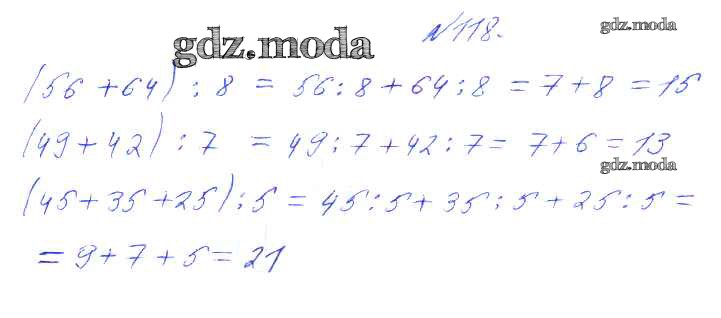 №118.
gdz.moda
gdz.moda
(56+64):8 = 56:8+64:8 = 7+8 = 15
(49+42):7 = 49:7+42:7= 7+6=13
gdz.moda
(45+35+25):5 = 45:5+35:5+25:5=
=9+7+5=21